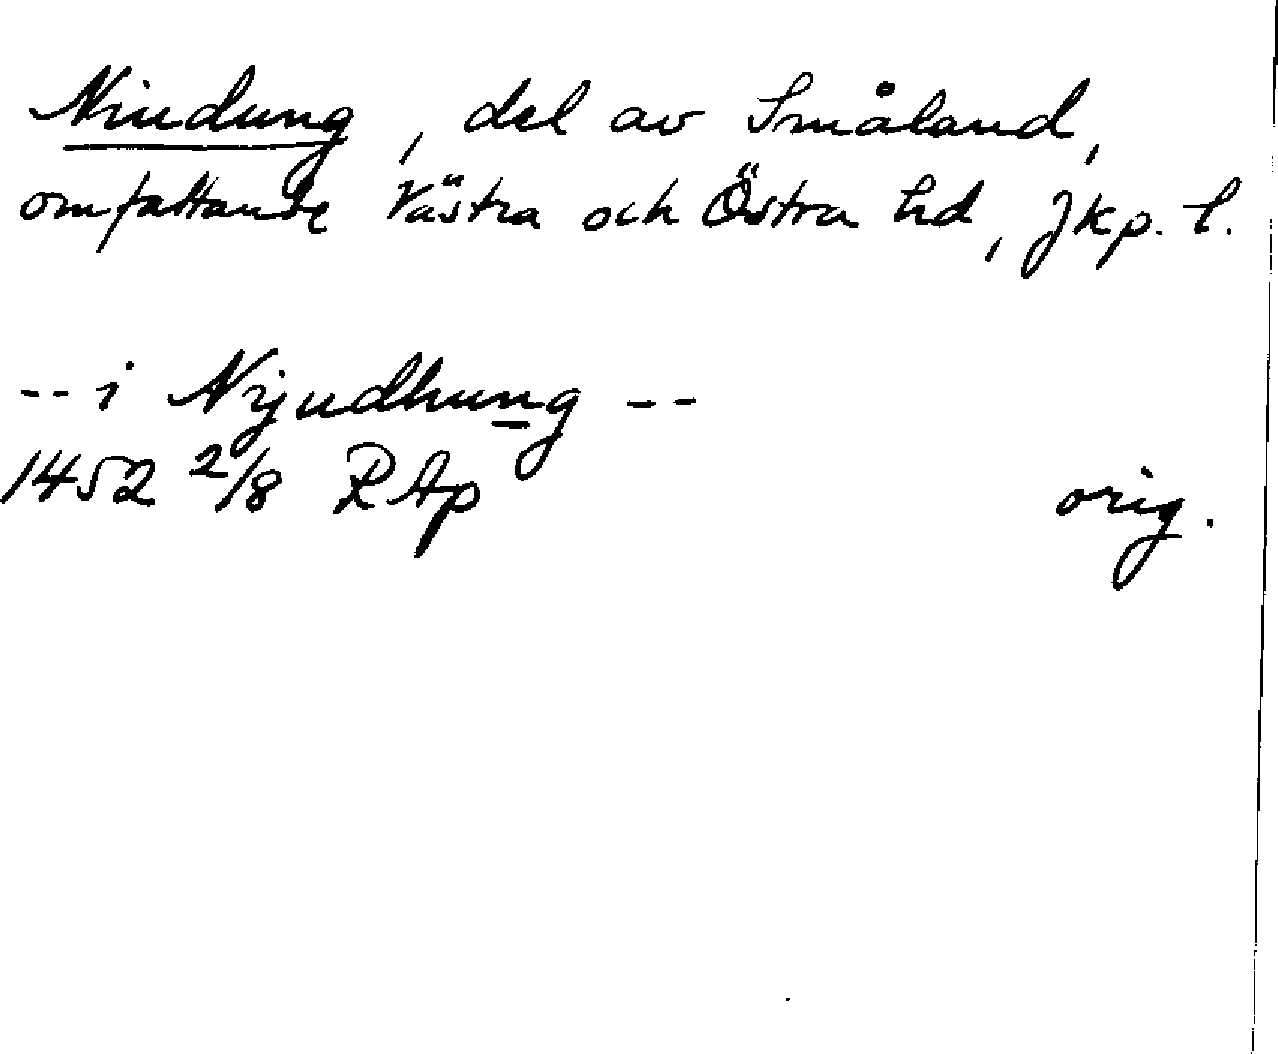 Niudung, del av Småland,
omfattande Västra och Östra hd, Jkp. l.
-- i Nijudhung --
1452 2/8 RAp orig.